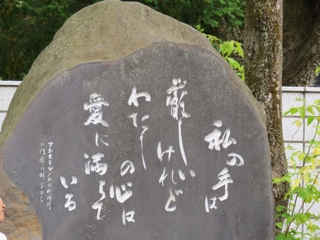 私の手は
厳しいけれど
わたしの心は
愛に満ちている